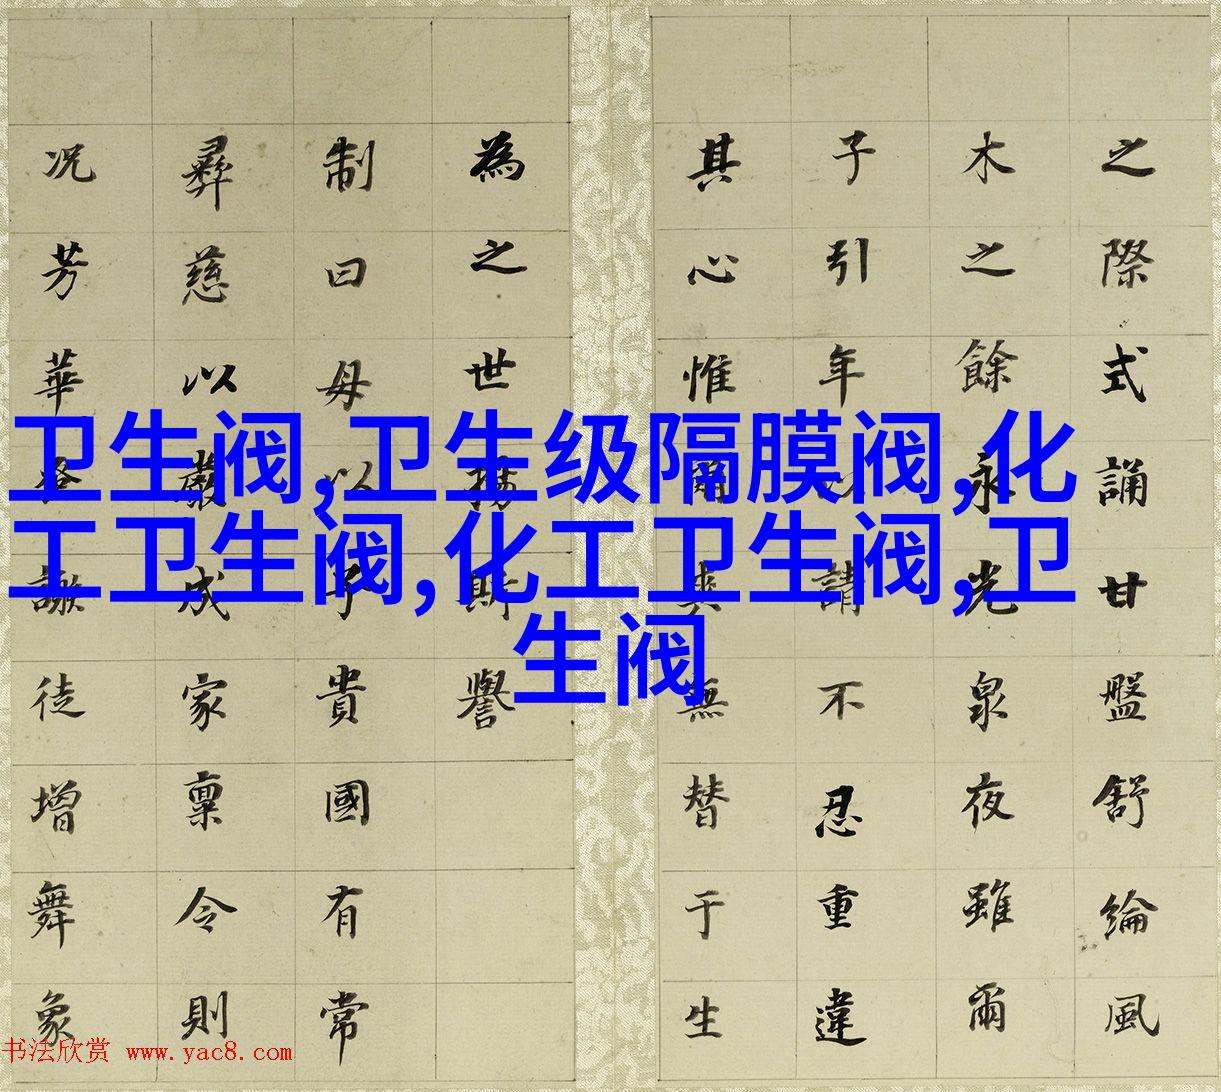 之際式誦甘盤舒綸風
木之餘永光泉夜雖爾
子引年以請不忍重違
其心惟爾無替于生
為之世揚斯譽
制曰母以子貴國有常
彝慈以嚴成家稟令則
况芳華謝徒增舞象
卫生阀,卫生级隔膜阀,化
工卫生阀,化工卫生阀,卫
生阀
书法欣赏 www.yac8.com